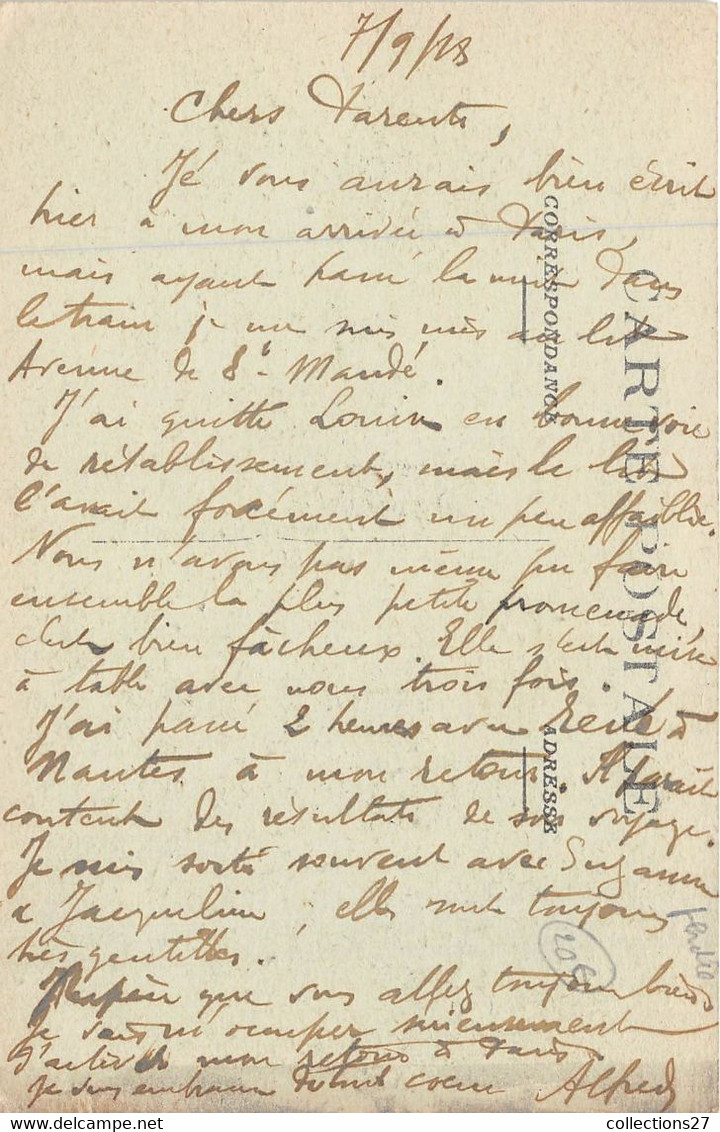 7/9/18
Chers Parents,
Je vous aurais bien écrit
hier à mon arrivée à Paris,
mais ayant passé la nuit dans
le train je me suis mis au lit
Avenue de St Mandé.
J'ai quitté Louise en bonne voie
de rétablissement, mais le lit
l'avait forcément un peu affaiblie.
Nous n'avons pas même pu faire
ensemble la plus petite promenade,
c'est bien fâcheux. Elle s'est mise
à table avec nous trois fois.
J'ai passé 2 heures avec René à
Nantes à mon retour. Il paraît
content des résultats de son voyage.
Je suis sorti souvent avec Suzanne
& Jacqueline; elles sont toujours
très gentilles.
J'espère que vous allez toujours bien
Je vais m'occuper sérieusement
d'activer mon retour à Paris.
Je vous embrasse de tout coeur Alfred
CARTE POSTALE
CORRESPONDANCE
ADRESSE
collections27